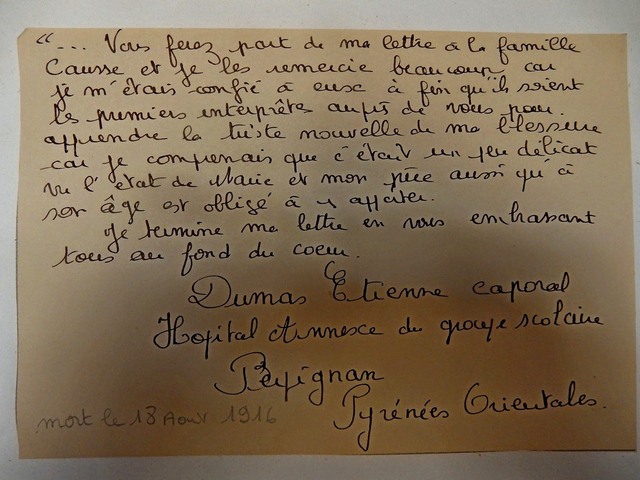 "... Vous ferez part de ma lettre à la famille
Causse et je les remercie beaucoup car
je m'étais confié à eux à fin qu'ils soient
les premiers interprêtes auprès de vous pour
apprendre la triste nouvelle de ma blessure
car je comprenais que c'était un peu délicat
vu l'état de Marie et mon père aussi qu'à
son âge est obligé à s'
Je termine ma lettre en vous embrassant
tous au fond du coeur.
Dumas Etienne caporal
Hopital Annexe du groupe scolaire
Perpignan
Pyrénées Orientales.
mort le 18 Août 1916